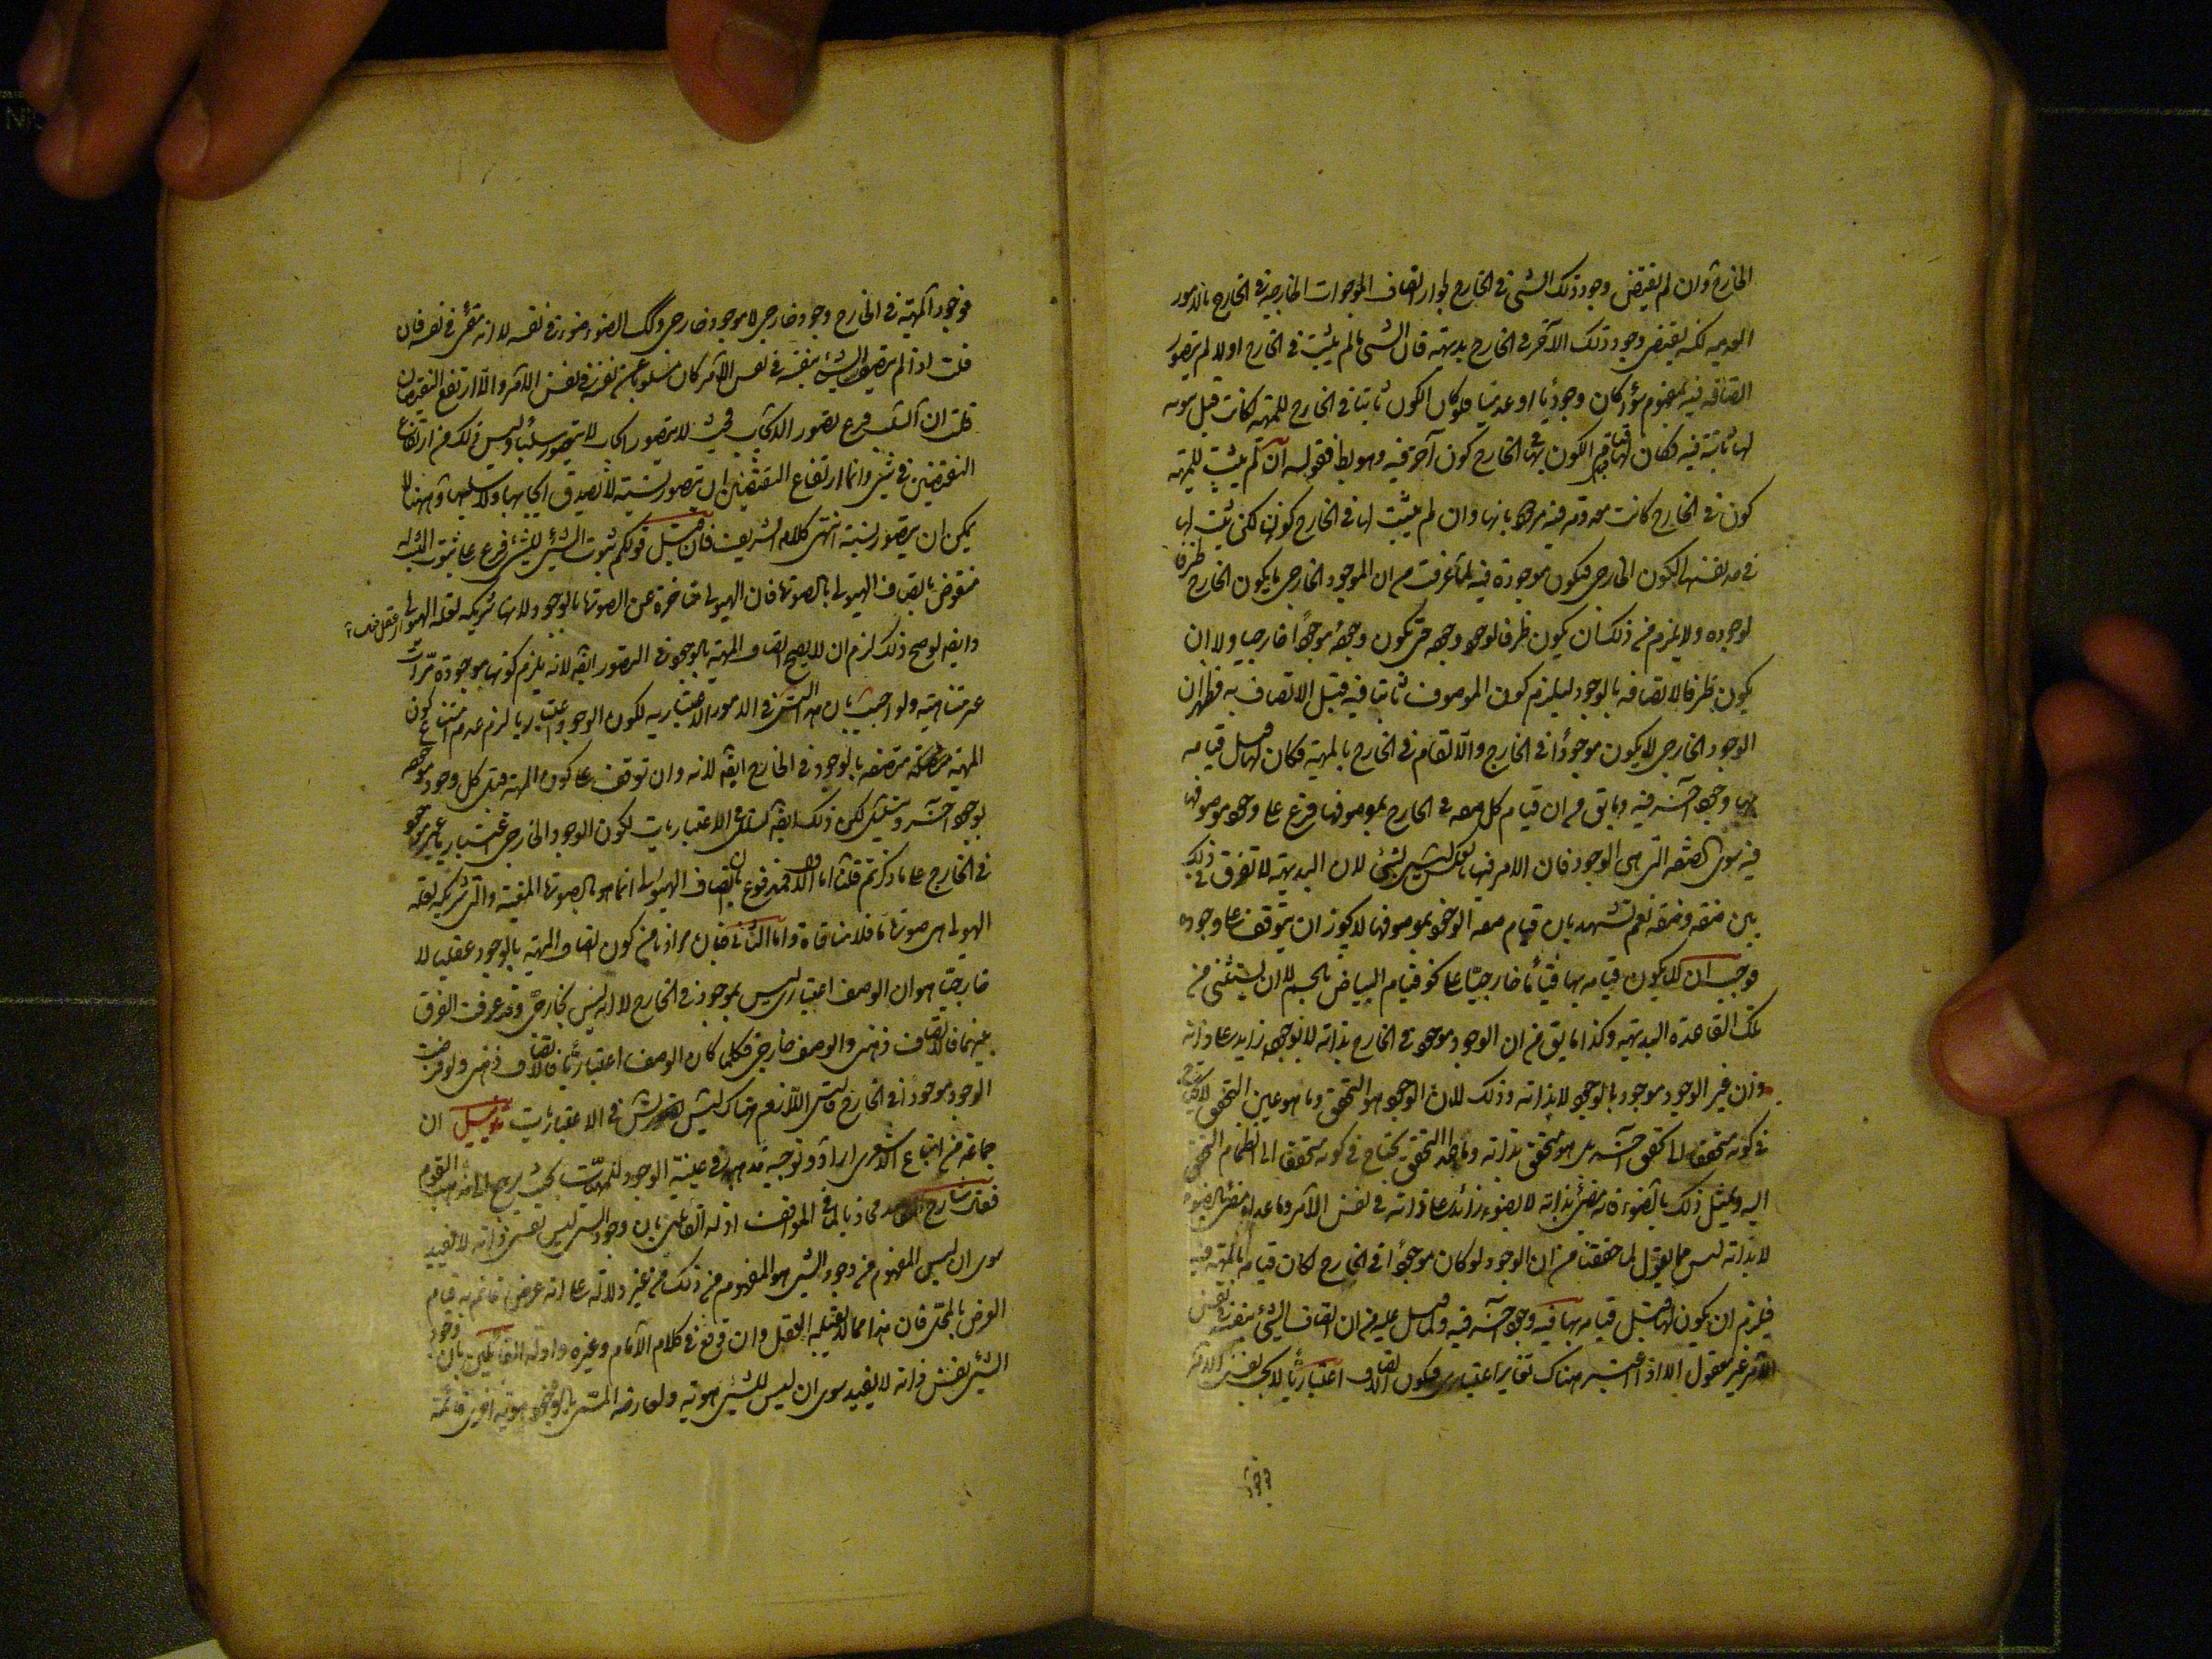 الخارج وان لم يقتض وجود ذلك الشئ فى الخارج لجواز اتصاف الموجودات الخارجية فى الخارج بالامور
العدمية لكنه يقتضى وجود ذلك الآخر فى الخارج بديهة فان الشئ ما لم يثبت فى الخارج اولا لم يتصور
اتصافه فيه بمفهوم سواء كان وجوديا او عدميا فلو كان الكون ثابتا فى الخارج للمهية لكانت قبل ثبوته
لها ثابتة فيه فكان لها قبل الكون فى الخارج كون آخر فيه وهو بط فقوله ان لم يثبت للمهية
كون فى الخارج كانت معدومة فيه مردود بانها وان لم يثبت لها فى الخارج كون لكن ثبت لها
فى حد نفسها الكون الخارجى فتكون موجودة فيه لما عرفت من ان الموجود الخارجى ما يكون الخارج ظرفا
لوجوده ولا يلزم من ذلك ان يكون ظرفا لوجود وجوده حتى يكون وجوده موجودا خارجيا ولا ان
يكون ظرفا لاتصافه بالوجود ليلزم كون الموصوف ثابتا فيه قبل الاتصاف به فظهر ان
الوجود الخارجى لا يكون موجودا فى الخارج والا لقام فى الخارج بالمهية فكان لها قبل قيامه
بها وجود آخر فيه وما يق من ان قيام كل صفة فى الخارج بموصوفها فرع على وجود موصوفها
فيه سوى الصفة التى هى الوجود فان الامر فيها بالعكس ليس بشئ لان البديهة لا تفرق فى ذلك
بين صفة وصفة نعم تشهد بان قيام صفة الوجود بموصوفها لا يجوز ان يتوقف على وجوده
فوجب ان لا يكون قيامه بها قياما خارجيا على نحو قيام البياض بالجسم لا ان يستثنى من
تلك القاعدة البديهية وكذا ما يق من ان الوجود موجود فى الخارج بذاته لا بوجود زايد على ذاته
وان غير الوجود موجود بالوجود لا بذاته وذلك لان الوجود هو التحقق وما هو عين التحقق لا يحتاج
فى كونه متحققا الى تحقق آخر بل هو متحقق بذاته وما عدا التحقق يحتاج فى كونه متحققا الى انضمام التحقق
اليه ويمثل ذلك بالضوء فانه مضئ بذاته لا بضوء زائد على ذاته فى نفس الامر وما عداه مضئ بالضوء
لا بذاته ليس مما يعول لما حققنا من ان الوجود لو كان موجودا فى الخارج لكان قيامه بالمهية فيه
فيلزم ان يكون لها قبل قيامه بها فيه وجود آخر فيه وما قيل عليه من ان اتصاف الشئ بنفسه فى نفس
الامر غير معقول الا اذا اعتبر هناك تغاير اعتبارى فيكون الاتصاف اعتباريا لا بحسب نفس الامر
فوجود المهية فى الخارج وجود خارجى لا موجود خارجى وكذلك الضوء ضوء فى نفسه لا انه مضئ فى نفسه فان
قلت اذا لم يتصف الشئ بنفسه فى نفس الامر كان مسلوبا عن نفسه فى نفس الامر والا ارتفع النقيضان
قلت ان السلب فرع تصور الايجاب فحيث لا يتصور ايجاب لا يتصور سلب وليس ذلك من ارتفاع
النقيضين فى شئ وانما ارتفاع النقيضين ان يتصور نسبة لا تصدق ايجابها ولا سلبها وههنا لا
يمكن ان يتصور نسبة انتهى كلام الشريف فان قيل قولكم ثبوت الشئ للشئ فرع على ثبوت المثبت له
منقوض باتصاف الهيولى بالصورة فان الهيولى متاخرة عن الصورة بالوجود لانها شريكة لعلة الهيولى
وايضه لو صح ذلك لزم ان لا يصح اتصاف المهية بالوجود فى التصور ايضه لانه يلزم كونها موجودة مرات
غير متناهية ولو اجيب بان هذا التس فى الامور الاعتبارية لكون الوجود اعتباريا لزم عدم امتناع كون
المهية متصفة بالوجود فى الخارج ايضه لانه وان توقف على كون المهية قبل كل وجود موجودة
بوجود آخر وتسلسل لكن ذلك ايضه تسلسل الاعتباريات لكون الوجود الخارجى اعتباريا غير موجود
فى الخارج على ما ذكرتم قلنا اما الاول فمدفوع بان اتصاف الهيولى انما هو بالصورة المعينة والتى شريكة لعلة
الهيولى هى صورة ما فلا منافاة واما الثانى فبان مرادنا من كون اتصاف المهية بالوجود عقليا لا
خارجيا هو ان الوصف اعتبارى ليس بموجود فى الخارج لا انه ليس بخارجى وقد عرفت الفرق
بينهما فالاتصاف ذهنى والوصف خارجى فكلما كان الوصف اعتباريا فالاتصاف ذهنى ولو فرضت
الوجود موجودا فى الخارج فالتس اللازم هناك ليس بتسلسل فى الاعتباريات تذييل ان
جماعة من اتباع الاشعرى ارادوا توجيه مذهبه فى عينية الوجود للمهيات بحيث يرجع الى مذهب القوم
فقال شارح المقاصد محاذيا لما فى المواقف ادلة القائلين بان وجود الشئ ليس نفس ذاته لا تفيد
سوى ان ليس المفهوم من وجود الشئ هو المفهوم من ذلك من غير دلالة على انه عرض قائم به قيام
العرض بالمحل فان هذا مما لا يقبله العقل وان وقع فى كلام الامام وغيره وادلة القائلين بان وجود
الشئ نفس ذاته لا يفيد سوى ان ليس للشئ هوية ولعارضه المسمى بالوجود هوية اخرى قائمة